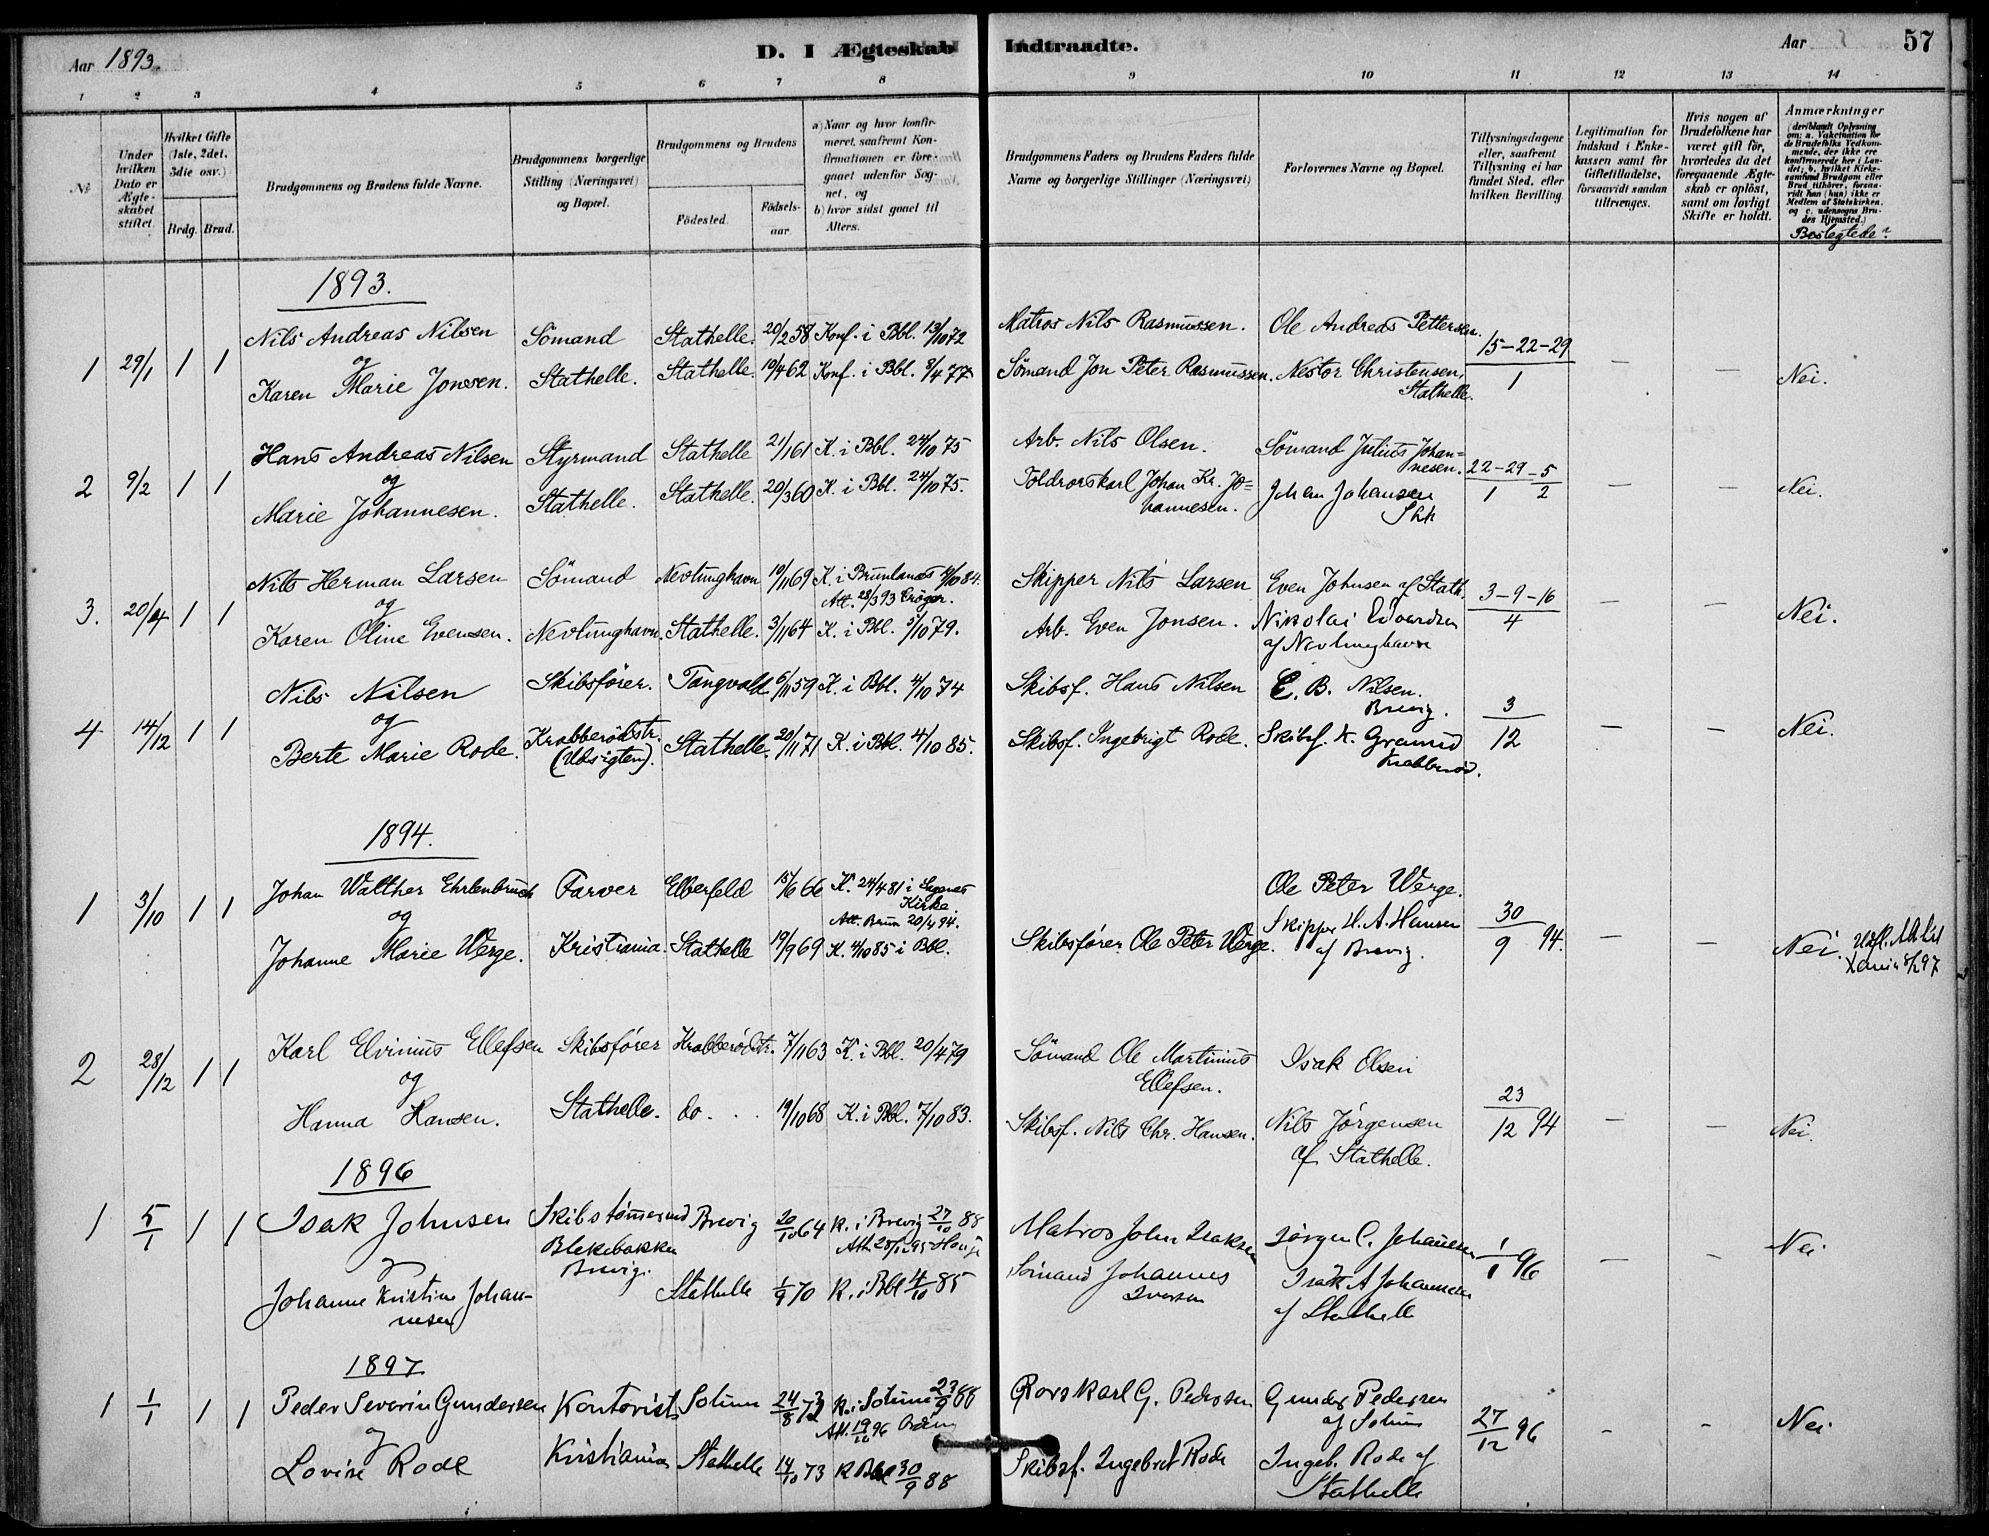 Aar 1893. D. I Ægteskab Indtraadte. Aar 57
1 2 3 4 5 6 7 8 9 10 11 12 13 14
№
Under hvilken Dato er Ægteskabet stiftet.
Hvilket Gifte (1ste, 2det, 3die osv.)
Brdg. Brud.
Brudgommens og Brudens fulde Navne.
Brudgommens borgerlige Stilling (Næringsvei) og Bopæl.
Brudgommens og Brudens
Födested. Födselsaar.
a) Naar og hvor konfirmeret, saafremt Konfirmationen er foregaaet udenfor Sognet, og
b) hvor sidst gaaet til Alters.
Brudgommens Faders og Brudens Faders fulde Navne og borgerlige Stillinger (Næringsvei)
Forlovernes Navne og Bopæl.
Tillysningsdagene eller, saafremt Tillysning ei har fundet Sted, efter hvilken Bevilling.
Legitimation for Indskud i Enkekassen samt for Giftetilladelse, forsaavidt saadan tiltrænges.
Hvis nogen af Brudefolkene har været gift før, hvorledes da det foregaaende Ægteskab er oplöst, samt om lovligt Skifte er holdt.
Anmærkninger
(deriblandt Oplysning om: a. Vakcination for de Brudefolks Vedkommende, der ikke ere konfirmerede her i Landet; b. hvilket Kirkesamfund Brudgom eller Brud tilhörer, forsaavidt han (hun) ikke er Medlem af Statskirken, og c. udensogns Brudes Hjemsted.)
Beslegtede?
1893.
Nils Andreas Nilsen Sömand Stathelle. 20/2 58 Konf. i Bbl. 13/10 72 Matros Nils Rasmussen. Ole Andreas Pettersen.
1 29/1 1 1 og 15-22-29/1 — — Nei.
Karen Marie Jonsen. Stathelle. Stathelle. 19/4 62 Konf. i Bbl. 8/4 77 Sömand Jon Peter Rasmussen. Nestor Christensen, Stathelle.
Hans Andreas Nilsen Styrmand Stathelle 21/1 61 K. i Bbl. 24/10 75 Arb. Nils Olsen. Sömand Julius Johannesen.
2 9/2 1 1 og 22-29/1 - 5/2 — — Nei.
Marie Johannesen. Stathelle. Stathelle. 20/3 60 K. i Bbl. 24/10 75. Toldrorskarl Johan Kr. Johannesen. Johan Johansen Sth
Nils Herman Larsen Sömand Nevlunghavn 10/11 69 K. i Brunlanes 84. Skipper Nils Larsen Even Johnsen af Stath.
Att. 28/3 93 Crøger.
3. 20/4 1 1 og 3-9-16/4 — — Nei.
Karen Oline Evensen. Nevlunghavn. Stathelle. 3/11 64 K. i Bbl. 5/10 79. Arb. Even Jonsen. Nikolai Edvardsen af Nevlunghavn
Nils Nilsen Skibsfører. Tangvald. 6/11 59 K. i Bbl. 4/10 74 Skibsf. Hans Nilsen E. B. Nilsen. Brevig.
4 14/12 1 1 og 3/12 — — Nei.
Berte Marie Rode. Krabberødstr. (Udsigten). Stathelle. 20/11 71 K. i Bbl. 4/10 85. Skibsf. Ingebrigt Rode. Skibsf. K. Krabberød.
1894.
Johan Walther Ehrlenbruch Farver Elberfeld 15/6 66 K. 24/4 81 i Kirke. Ole Peter Werge.
Att. Brun 20/4 94.
1 3/10 1 1 og 30/9 94. — — Nei.
Johanne Marie Werge. Kristiania. Stathelle 19/9 69 K. 4/10 85 i Bbl. Skibsfører Ole Peter Werge. Skipper H. A. Hansen af Brevig.
Karl Elvinius Ellefsen Skibsfører Krabberødstr. 7/11 63 K. i Bbl. 20/4 79 Sömand Ole Martinius Ellefsen. Isak Olsen
2 28/12 1 1 og 23/12 94 — — Nei.
Hanna Hansen. Stathelle. do. 19/10 68 K. i Bbl. 7/10 83. Skibsf. Nils Chr. Hansen. Nils Jørgensen af Stathelle.
1896
1 5/1 1 1 Isak Johnsen Skibstømmermd Brevig 20/10 64 K. i Brevig 27/10 88 Matros John Isaksen Jørgen C. Johannesen 1/1 96 — — Nei
og Blekebakken Brevig.
Johanne Kristine Johannesen Stathelle 1/9 70 K. i Bbl 4/10 85 Sömand Johannes Iversen Isak A Johannesen af Stathelle
1897
1 1/1 1 1 Peder Severin Gundersen Kontorist Solum 24/8 73 K. i Solum 23/9 88 Rorskarl G. Pedersen Gunder Pedersen af Solum 27/12 96 - - Nei
og
Lovise Rode Kristiania Stathelle 14/10 73 K Bbl 30/9 88 Skibsf. Ingebret Rode Ingeb. Rode af Stathelle